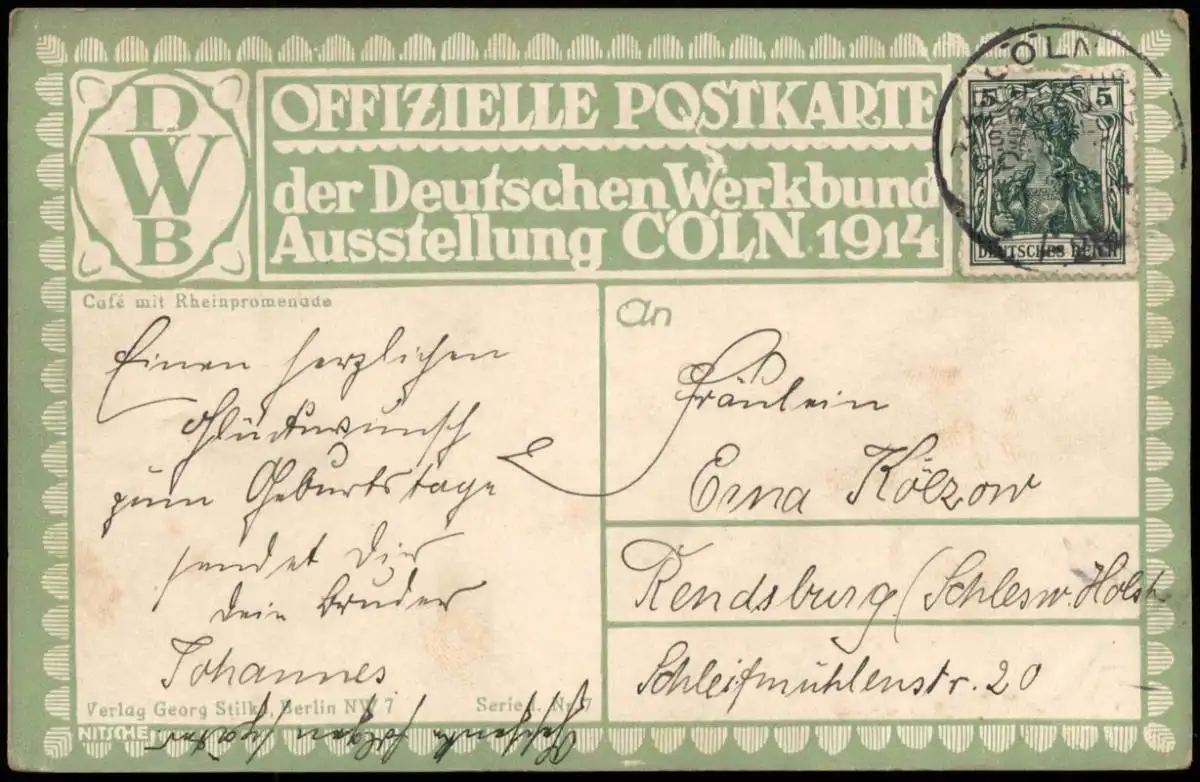 DWB
OFFIZIELLE POSTKARTE
der Deutschen Werkbund
Ausstellung CÖLN 1914
CÖLN
5 5
DEUTSCHES REICH
Café mit Rheinpromenade
An
Einen herzlichen
Glückwunsch
zum Geburtstage
sendet Dir
Dein Bruder
Johannes
Geschenke folgen später.
Fräulein
Erna Kölzow
Rendsburg (Schlesw. Holst
Schleifmühlenstr. 20
Verlag Georg Stilke, Berlin NW 7
Serie 1. Nr. 7
NITSCHE